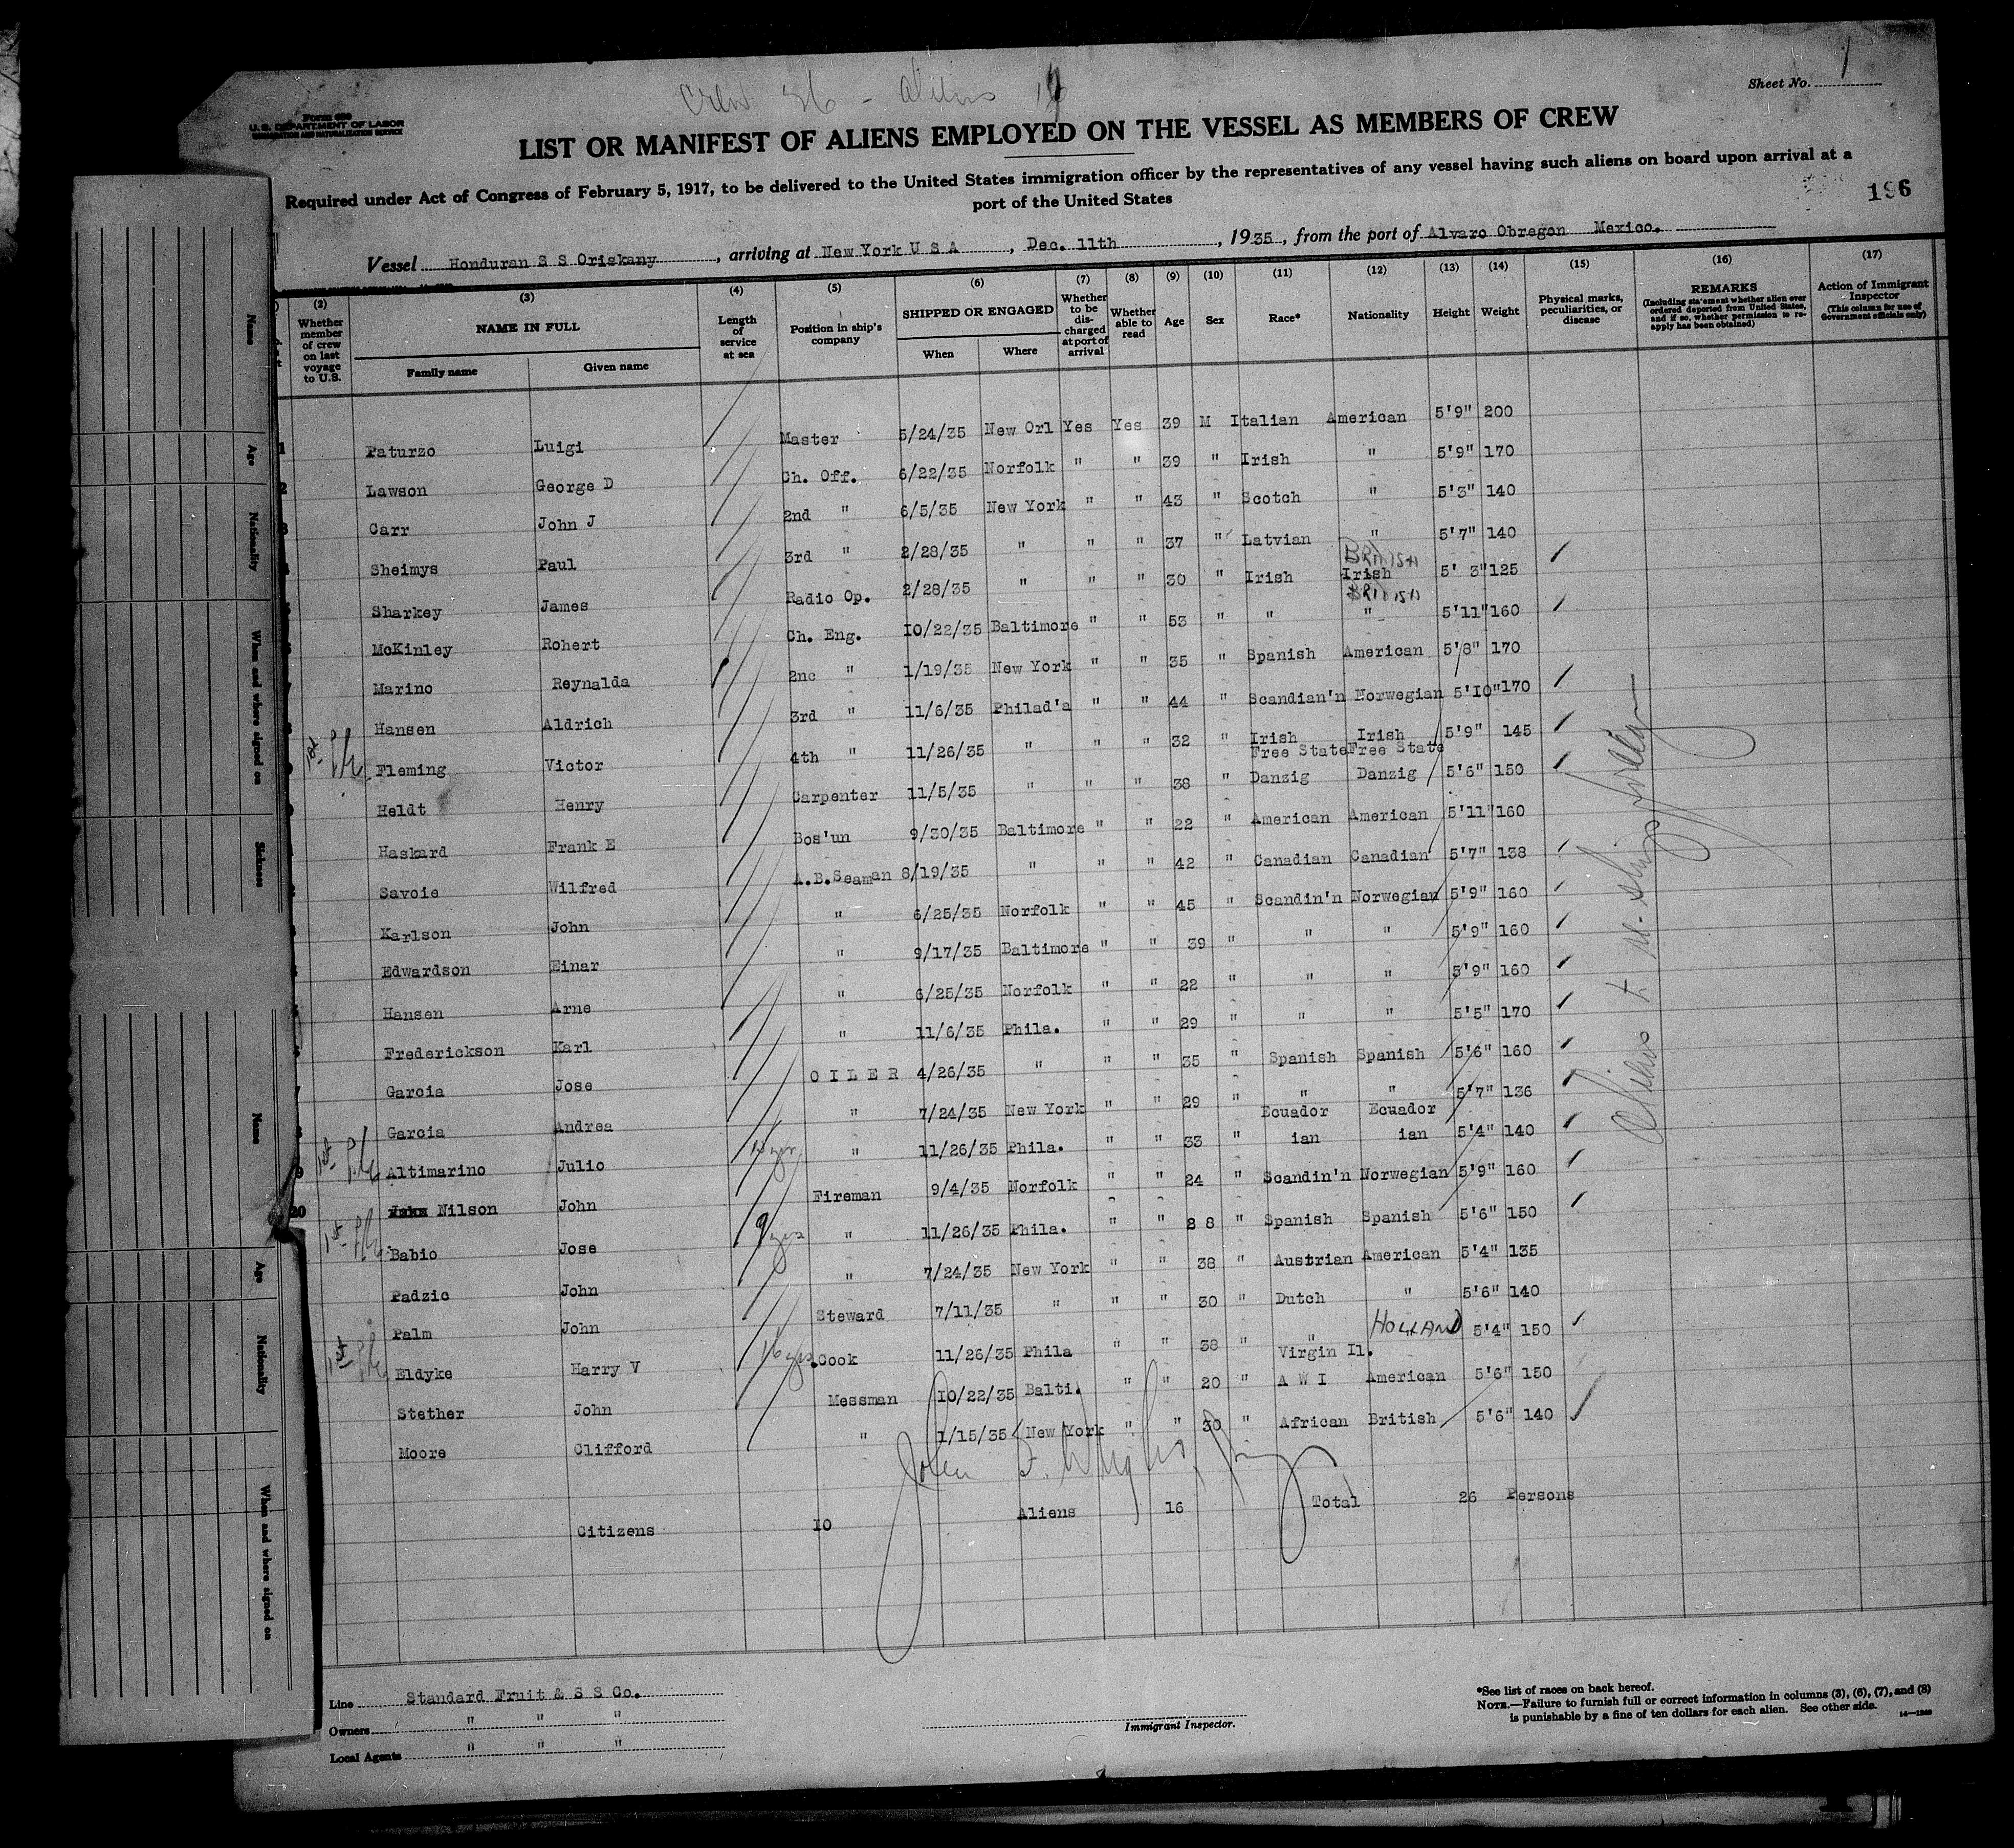 Crew 26 - aliens 16
Sheet No. 1
Form 680
U. S. DEPARTMENT OF LABOR
IMMIGRATION AND NATURALIZATION SERVICE
LIST OR MANIFEST OF ALIENS EMPLOYED ON THE VESSEL AS MEMBERS OF CREW
Required under Act of Congress of February 5, 1917, to be delivered to the United States immigration officer by the representatives of any vessel having such aliens on board upon arrival at a
port of the United States
196
Vessel Honduran S S Oriskany, arriving at New York U S A, Dec. 11th, 1935, from the port of Alvaro Obregon Mexico.
(2) (3) (4) (5) (6) (7) (8) (9) (10) (11) (12) (13) (14) (15) (16) (17)
Whether member of crew on last voyage to U.S.
NAME IN FULL
Family name Given name
Length of service at sea
Position in ship's company
SHIPPED OR ENGAGED
When Where
Whether to be discharged at port of arrival
Whether able to read
Age
Sex
Race*
Nationality
Height
Weight
Physical marks, peculiarities, or disease
REMARKS
(Including statement whether alien ever ordered deported from United States, and if so, whether permission to re-apply has been obtained)
Action of Immigrant Inspector
(This column for use of Government officials only)
1 Paturzo Luigi Master 5/24/35 New Orl Yes Yes 39 M Italian American 5'9" 200
2 Lawson George D Ch. Off. 6/22/35 Norfolk " " 39 " Irish " 5'9" 170
Carr John J 2nd " 6/5/35 New York " " 43 " Scotch " 5'3" 140
Sheimys Paul 3rd " 2/28/35 " " " 37 " Latvian " 5'7" 140
Sharkey James Radio Op. 2/28/35 " " " 30 " Irish Irish BRITISH 5' 3" 125
McKinley Robert Ch. Eng. 10/22/35 Baltimore " " 53 " " " BRITISH 5'11" 160
Marino Reynalda 2nc " 1/19/35 New York " " 35 " Spanish American 5'8" 170
Hansen Aldrich 3rd " 11/6/35 Philad'a " " 44 " Scandian'n Norwegian 5'10" 170
1st Fleming Victor 4th " 11/26/35 " " " 32 " Irish Free State Irish Free State 5'9" 145
Heldt Henry Carpenter 11/5/35 " " " 38 " Danzig Danzig 5'6" 150
Haskard Frank E Bos'un 9/30/35 Baltimore " " 22 " American American 5'11" 160
Savoie Wilfred A.B.Seaman 8/19/35 " " " 42 " Canadian Canadian 5'7" 138
Karlson John " 6/25/35 Norfolk " " 45 " Scandin'n Norwegian 5'9" 160
Edwardson Einar " 9/17/35 Baltimore " " 39 " " " 5'9" 160
Hansen Arne " 6/25/35 Norfolk " " 22 " " " 5'9" 160
Frederickson Karl " 11/6/35 Phila. " " 29 " " " 5'5" 170
Garcia Jose OILER 4/26/35 " " " 35 " Spanish Spanish 5'6" 160
Garcia Andrea " 7/24/35 New York " " 29 " " " 5'7" 136
1st 9 Altimarino Julio " 11/26/35 Phila. " " 33 " Ecuador ian Ecuador ian 5'4" 140
20 Nilson John Fireman 9/4/35 Norfolk " " 24 " Scandin'n Norwegian 5'9" 160
1st Babio Jose 9 yrs " 11/26/35 Phila. " " 38 " Spanish Spanish 5'6" 150
Padzic John " 7/24/35 New York " " 38 " Austrian American 5'4" 135
Palm John Steward 7/11/35 " " " 30 " Dutch " 5'6" 140
1st Eldyke Harry V 16 yrs. Cook 11/26/35 Phila " " 38 " " HOLLAND 5'4" 150
Stether John Messman 10/22/35 Balti. " " 20 " Virgin Il. A W I American 5'6" 150
Moore Clifford " 1/15/35 New York " " 30 " African British 5'6" 140
Citizens 10 Aliens 16 Total 26 Persons
Line Standard Fruit & S S Co.
Owners " " "
Local Agents " " "
Immigrant Inspector.
*See list of races on back hereof.
NOTE.—Failure to furnish full or correct information in columns (3), (6), (7), and (8)
is punishable by a fine of ten dollars for each alien. See other side.
Name
Age
Nationality
When and where signed on
Sickness
Name
Age
Nationality
When and where signed on